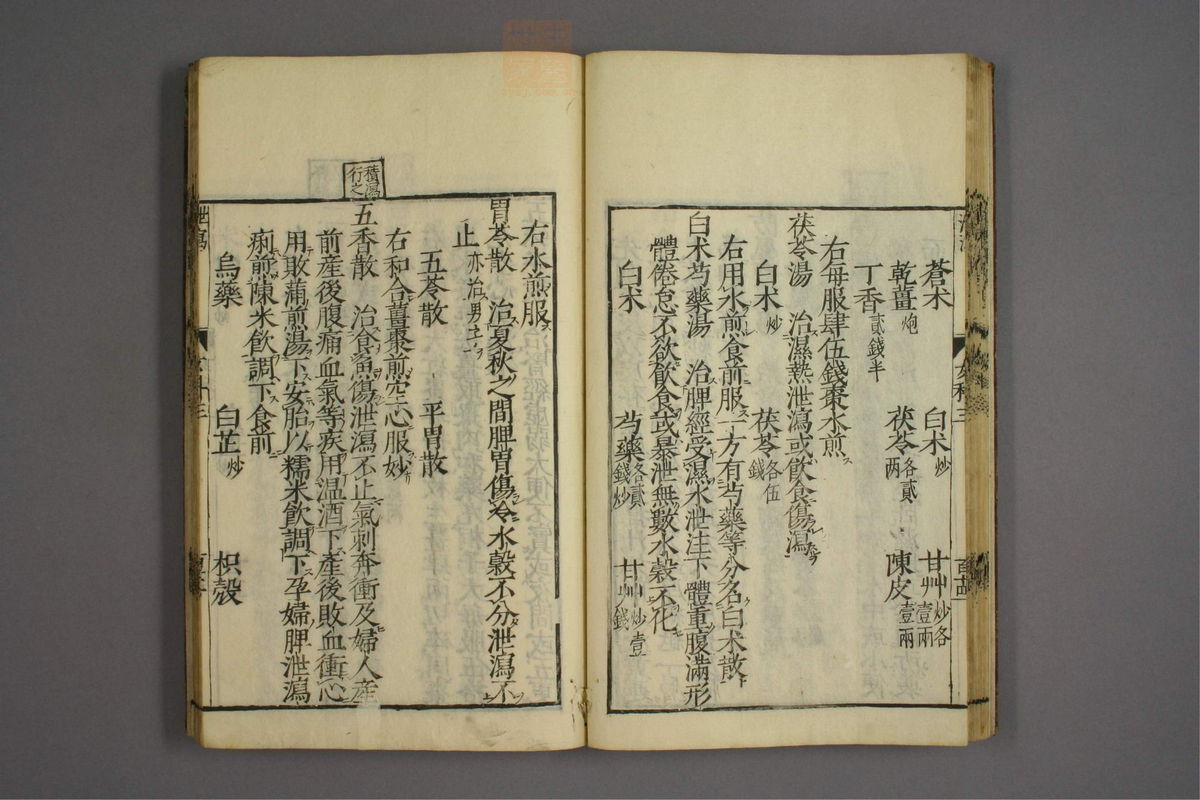 蒼朮 白朮炒 甘艸炒各壹兩
乾薑炮 茯苓各貳兩 陳皮壹兩
丁香貳錢半
右每服肆伍錢棗水煎ス
茯苓湯 治濕熱泄瀉或飲食傷瀉
白朮炒 茯苓各伍錢
右用水煎食前服ス一方有芍藥等分名白朮散
白朮芍藥湯 治脾經受濕水泄注下體重腹滿形
體倦怠不欲飲食或暴泄無數水穀不化
白朮 芍藥各貳錢炒 甘艸炒壹錢
右水煎服ス
胃苓散 治夏秋之間脾胃傷冷水穀不分泄瀉不
止亦治男士
五苓散 平胃散
右和合薑棗煎空心服妙
積瀉行之
五香散 治食魚傷泄瀉不止氣刺奔衝及婦人產
前產後腹痛血氣等疾用溫酒下產後敗血衝心
用敗蒲煎湯下安胎以糯米飲調下孕婦脾泄瀉
痢煎陳米飲調下食前
烏藥 白芷炒 枳殼
泄瀉